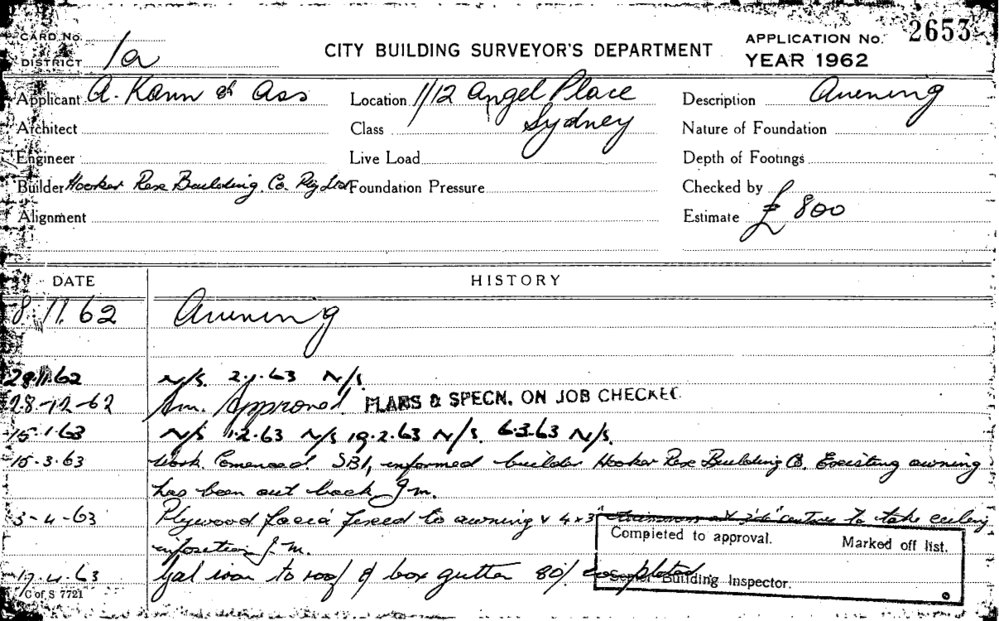 CARD No.
APPLICATION No. 2653
DISTRICT 1a
CITY BUILDING SURVEYOR'S DEPARTMENT
YEAR 1962
Applicant A. Kann & Ass Location 1/12 Angel Place Description Awning
Architect Class Sydney Nature of Foundation
Engineer Live Load Depth of Footings
Builder Hooker Rex Building Co. Pty Ltd Foundation Pressure Checked by
Alignment Estimate £ 800
DATE HISTORY
8.11.62 Awning
28.11.62 N/S. 2.1.63 N/S.
28-12-62 Am. Approved PLANS & SPECN. ON JOB CHECKED
15.1.63 N/S 1.2.63 N/S 19.2.63 N/S. 6.3.63 N/S.
15.3.63 Work Comenced SB1, informed builder Hooker Rex Building Co. Existing awning
has been cut back J.m.
3-4-63 Plywood facia fixed to awning & 4x3" at 3'6" centres to take ceiling
in position J.M.
17.4.63 Gal iron to roof & box gutter 80% completed
Completed to approval. Marked off list.
Senior Building Inspector.
C of S 7721